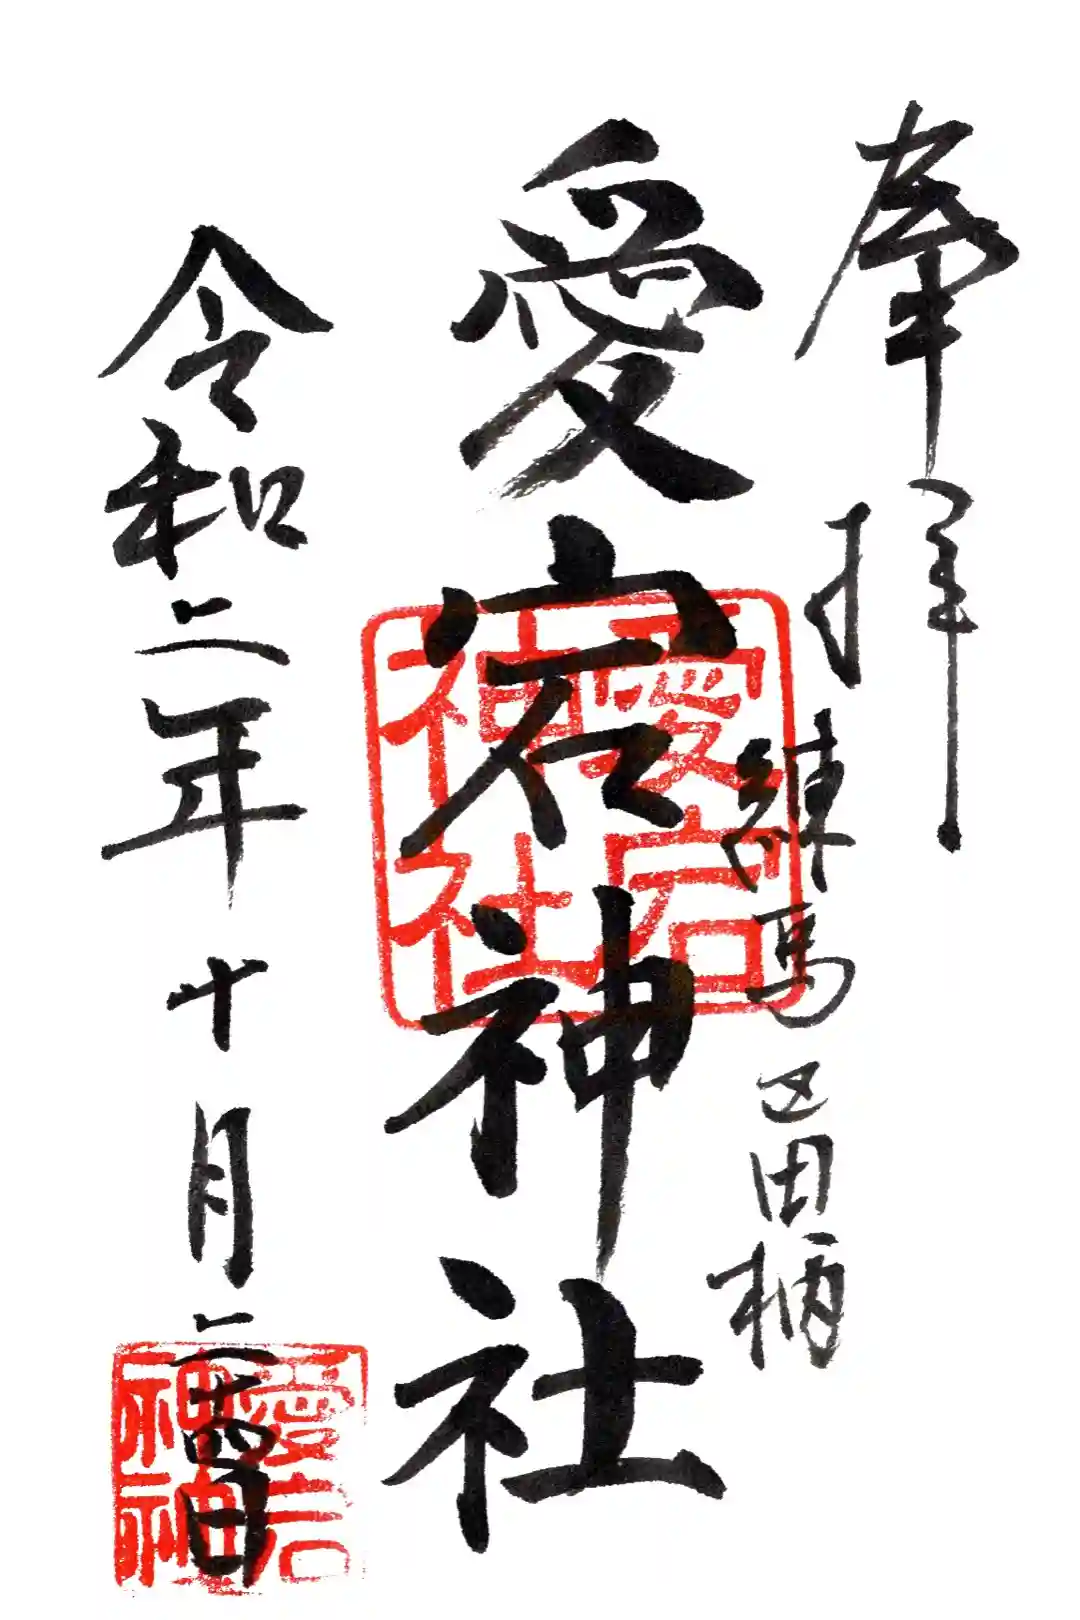 奉拝
練馬区田柄
愛宕神社
愛宕神社
令和二年十月二十四日